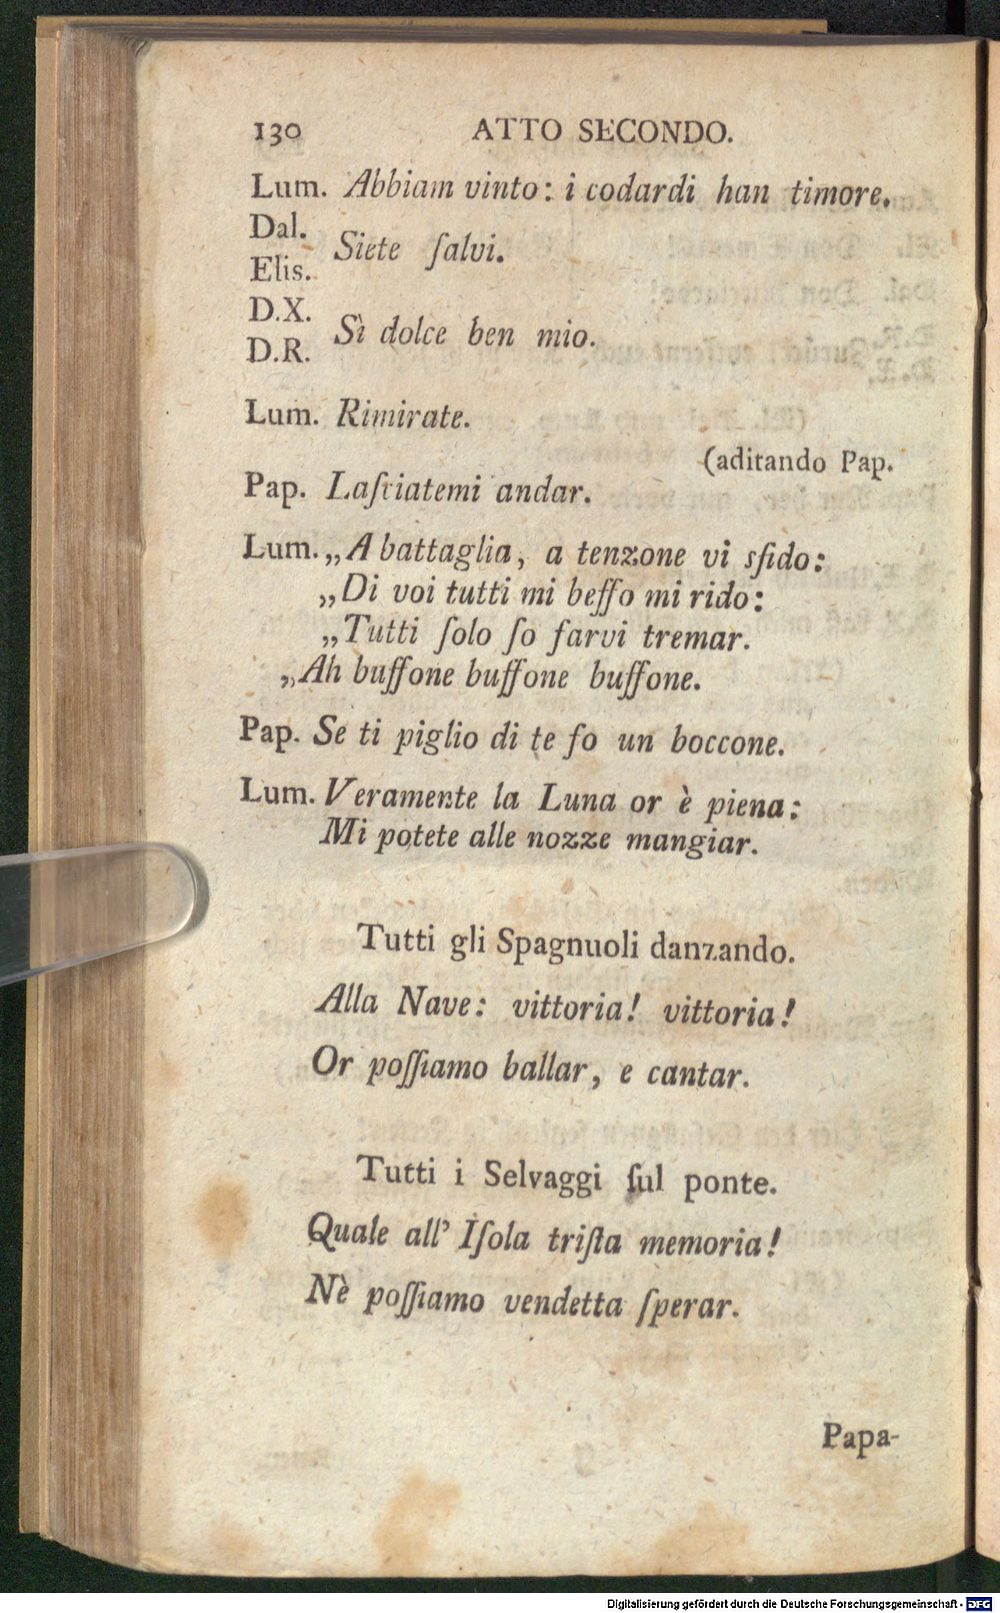 130 ATTO SECONDO.
Lum. Abbiam vinto: i codardi han timore.
Dal.
Elis. Siete ſalvi.
D.X.
D.R. Sì dolce ben mio.
Lum. Rimirate.
(aditando Pap.
Pap. Laſciatemi andar.
Lum. „A battaglia, a tenzone vi sfido:
„Di voi tutti mi beffo mi rido:
„Tutti ſolo ſo farvi tremar.
„Ah buffone buffone buffone.
Pap. Se ti piglio di te fo un boccone.
Lum. Veramente la Luna or è piena:
Mi potete alle nozze mangiar.
Tutti gli Spagnuoli danzando.
Alla Nave: vittoria! vittoria!
Or poſſiamo ballar, e cantar.
Tutti i Selvaggi ſul ponte.
Quale all' Iſola triſta memoria!
Nè poſſiamo vendetta ſperar.
Papa-
Digitalisierung gefördert durch die Deutsche Forschungsgemeinschaft - DFG